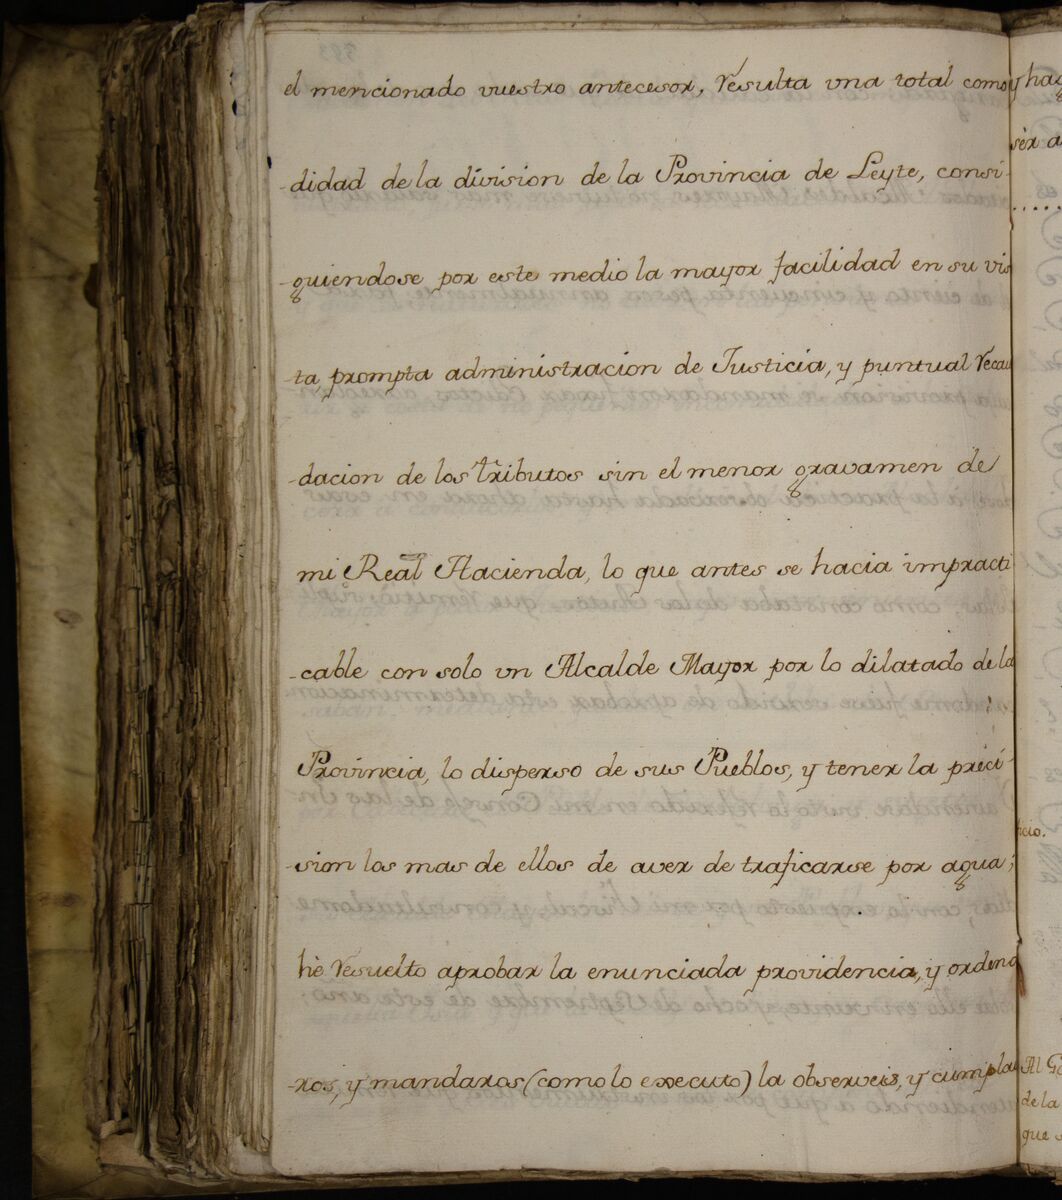 el mencionado vuestro antecesor, resulta vna total como
didad de la division de la Provincia de Leyte, consi-
guiendose por este medio la mayor facilidad en su vis
ta, prompta administracion de Justicia, y puntual recau
dacion de los tributos sin el menor gravamen de
mi Real Hacienda, lo que antes se hacia impracti
cable con solo vn Alcalde Mayor por lo dilatado de la
Provincia, lo disperso de sus Pueblos, y tener la preci-
sion los mas de ellos de aver de traficarse por agua;
hè resuelto aprobar la enunciada providencia, y ordena
ros, y mandaros (como lo executo) la observeis, y cumplai
y hag
sèr a
icio.
Al Go
de la
que